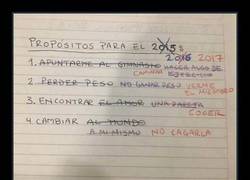 PROPÓSITOS PARA EL 2015:
2016 2017
1. APUNTARME AL GIMNASIO HACER ALGO DE EJERCICIO
CAMINAR
2. PERDER PESO NO GANAR PESO VERME
EL MISMO
3. ENCONTRAR EL AMOR UNA PAREJA
COGER
4. CAMBIAR AL MUNDO
A MI MISMO NO CAGARLA